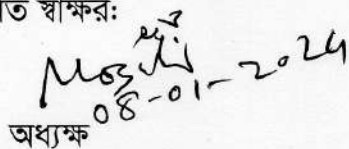 ত স্বাক্ষরঃ
08-01-2024
অধ্যক্ষ